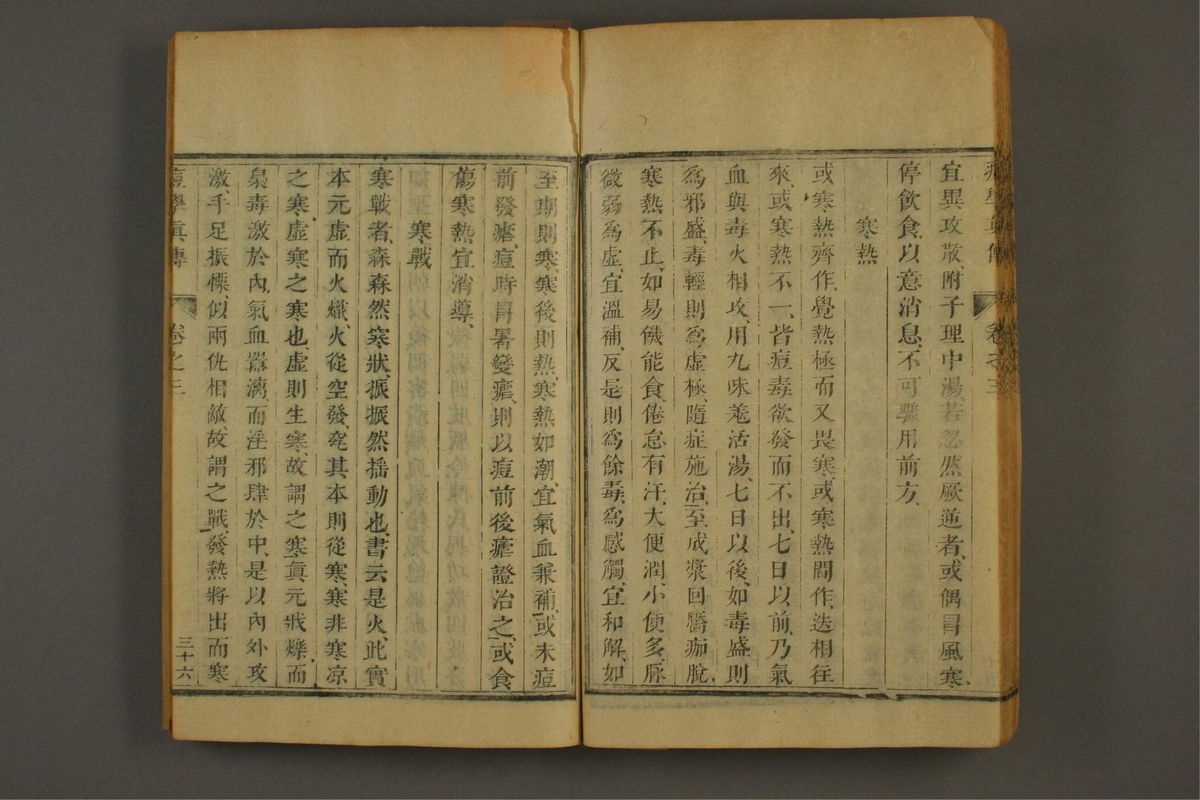 宜異攻散附子理中湯若忽然厥逆者、或偶冒風寒、
停飲食、以意消息、不可驟用前方、
寒熱
或寒熱齊作、覺熱極而又畏寒、或寒熱間作、迭相往
來、或寒熱不一、皆痘毒欲發而不出、七日以前、乃氣
血與毒火相攻、用九味羗活湯、七日以後、如毒盛則
為邪盛、毒輕則為虛極、隨症施治、至成漿回靨痂脫、
寒熱不止、如易饑能食、倦怠有汗、大便潤、小便多、脈
微弱為虛、宜溫補、反是則為餘毒、為感觸、宜和解、如
至期則寒、寒後則熱、寒熱如潮、宜氣血兼補、或未痘
前發瘧、痘時冒暑變瘧、則以痘前後瘧證治之、或食
傷寒熱、宜消導、
寒戰
寒戰者、森森然寒狀、振振然揺動也、書云是火、此實
本元虛而火熾、火從空發、究其本則從寒、寒非寒凉
之寒、虛寒之寒也、虛則生寒、故謂之寒、眞元戕爍、而
梟毒激於內、氣血囂漓、而淫邪肆於中、是以內外攻
激、手足振慄、似兩仇相敵、故謂之戰、發熱將出而寒
痘學眞傳
卷之三
三十六